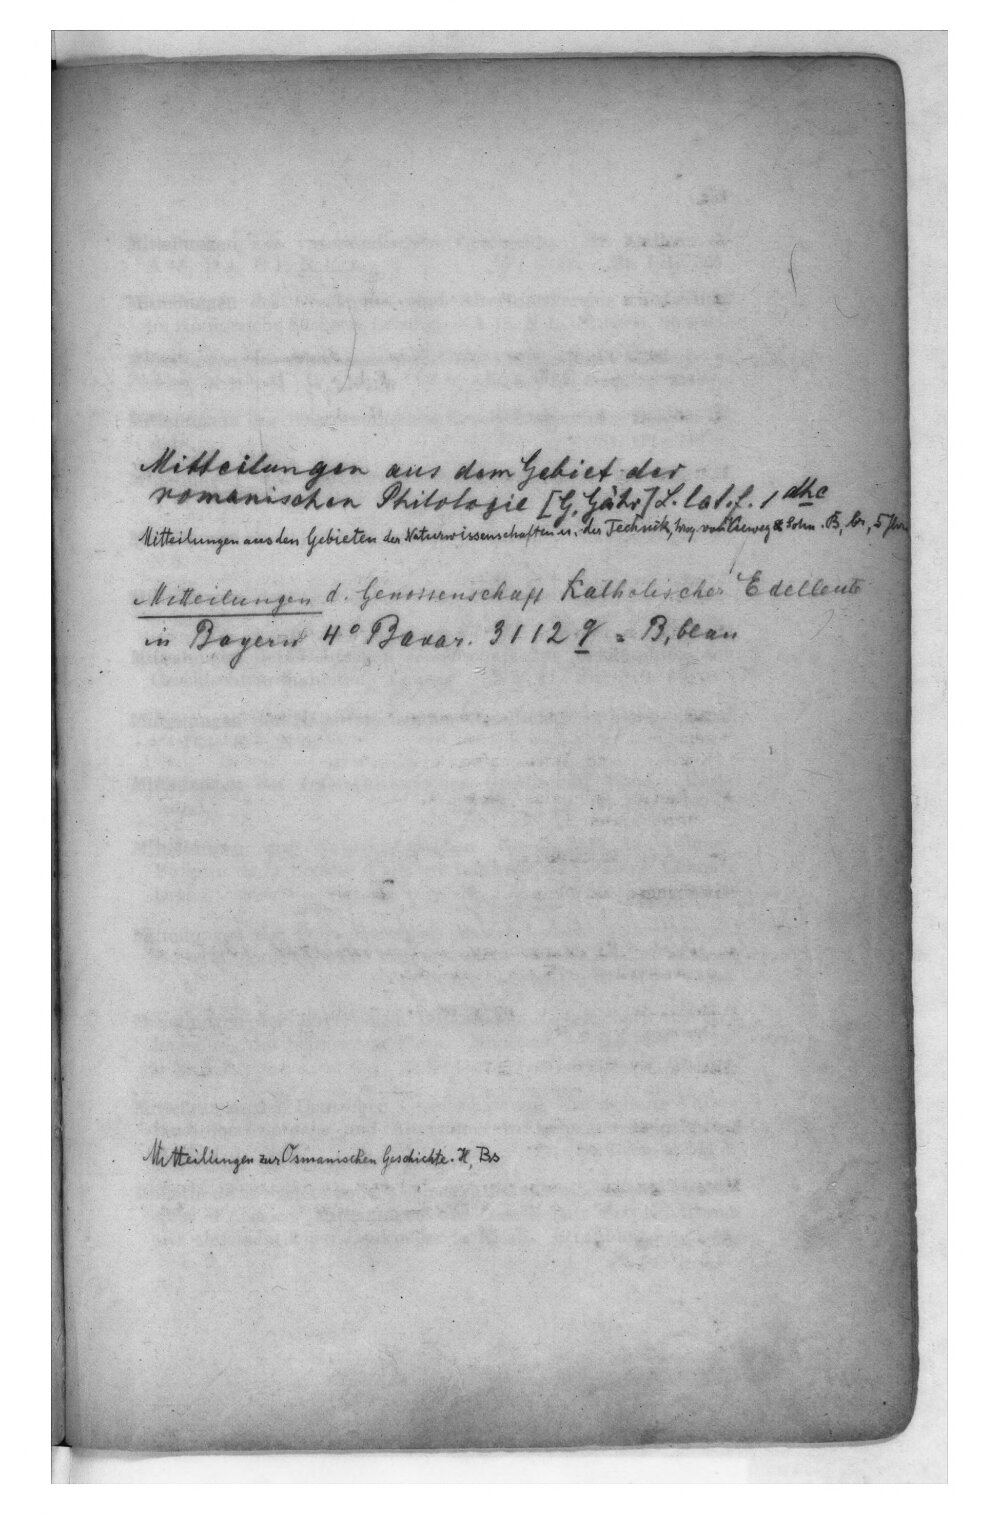 Mitteilungen aus dem Gebiet der
romanischen Philologie [G, Gähr] L. lat. f. 1 dhc
Mitteilungen aus den Gebieten der Naturwissenschaften u. der Technik, hrg. von Vieweg & Sohn. B, br,
Mitteilungen d. Genossenschaft Katholischer Edelleute
in Bayern 4° Bavar. 3112 q = B, blau
Mitteilungen zur Osmanischen Geschichte. H, Bs